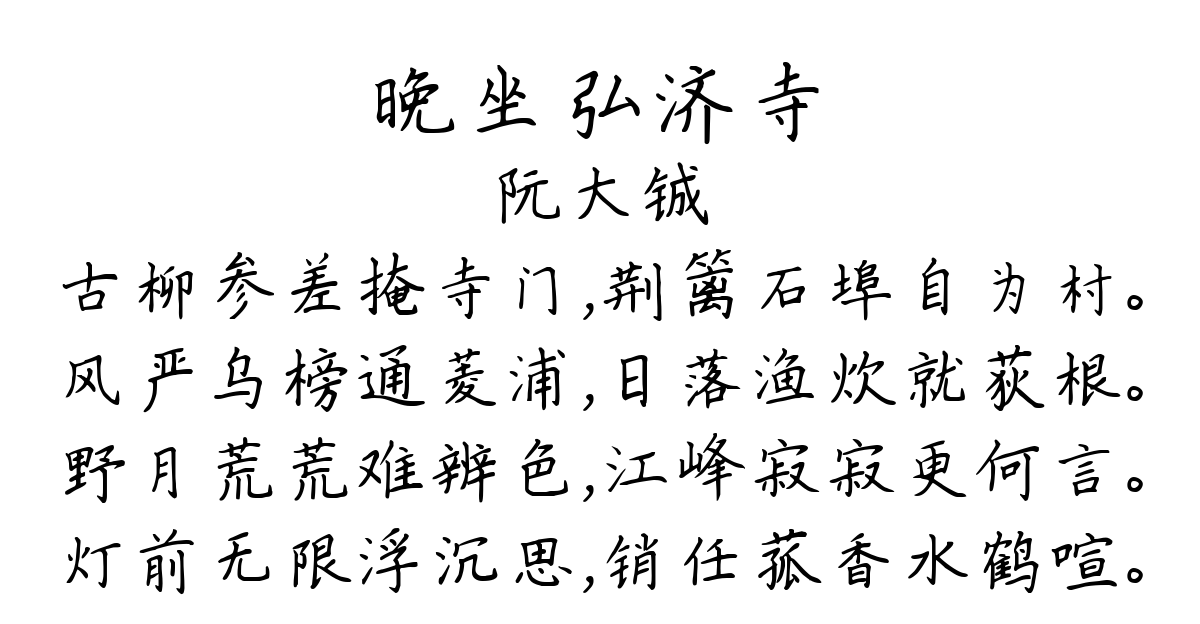 晚坐弘济寺
阮大铖
古柳参差掩寺门,荆篱石埠自为村。
风严乌榜通菱浦,日落渔炊就荻根。
野月荒荒难辨色,江峰寂寂更何言。
灯前无限浮沉思,销任菰香水鹤喧。